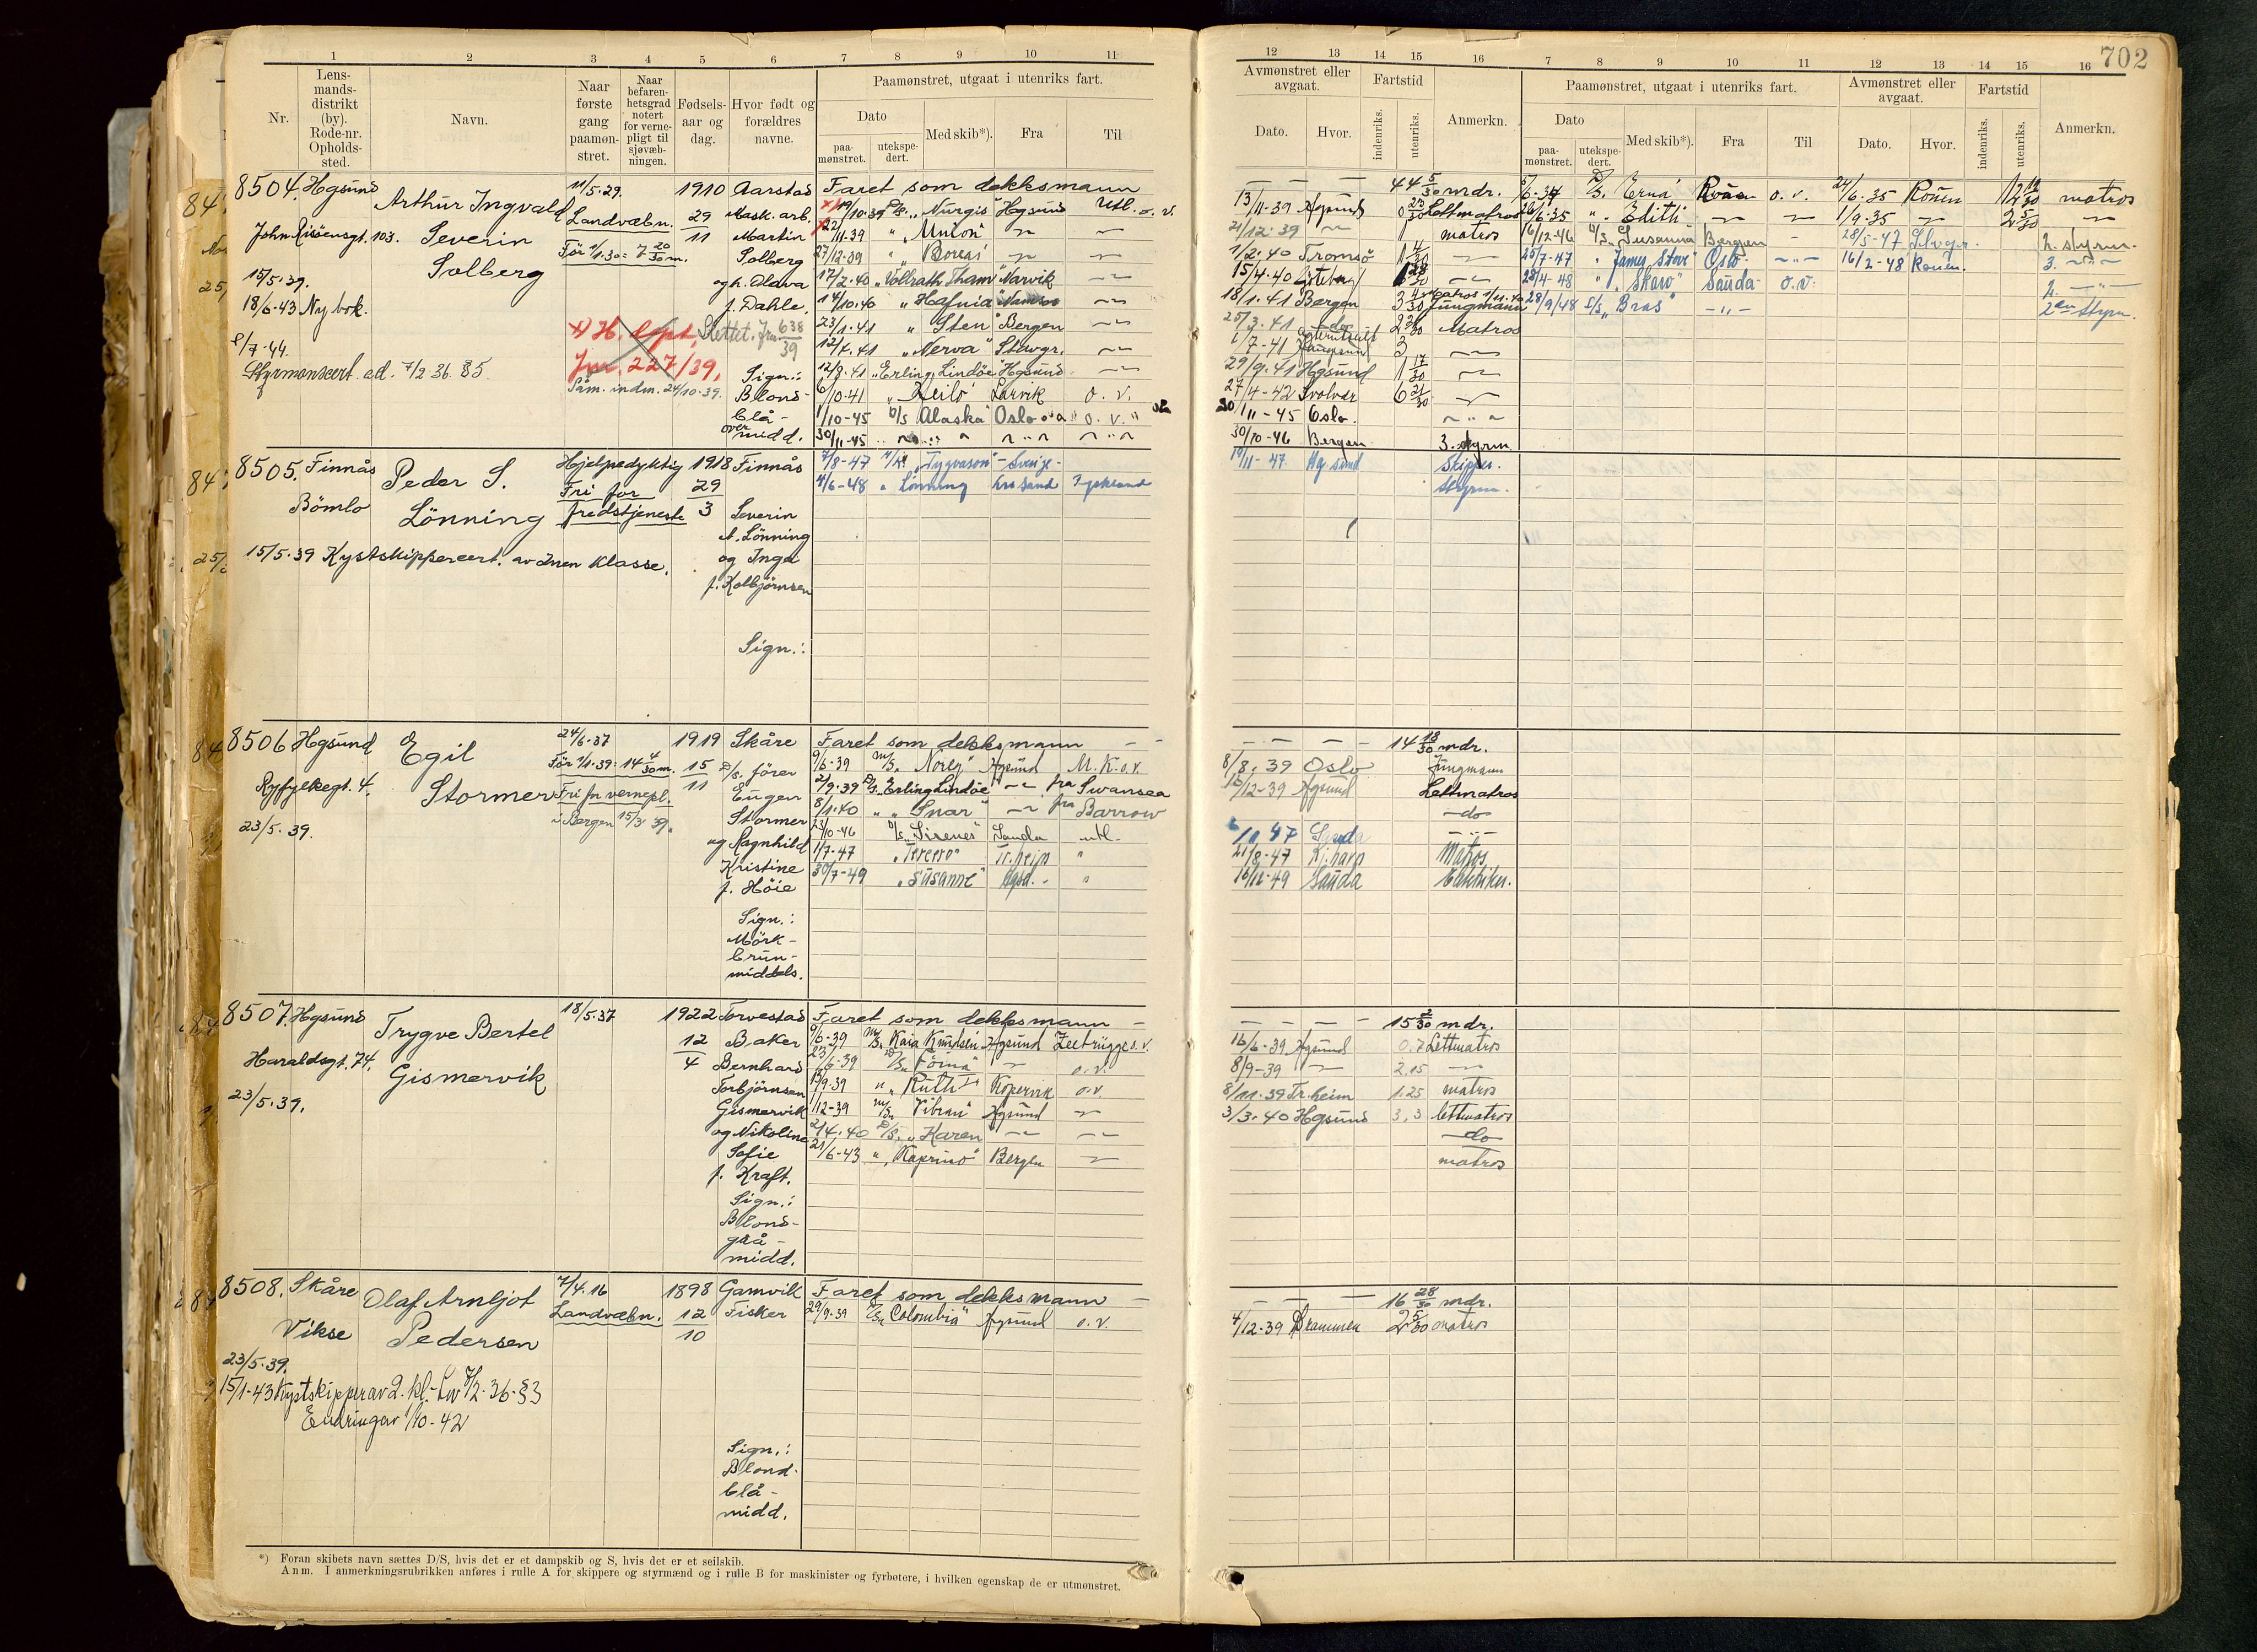 702
1 2 3 4 5 6 7 8 9 10 11
Nr.
Lens-
mands-
distrikt
(by).
Rode-nr.
Opholds-
sted.
Navn.
Naar
første
gang
paamøn-
stret.
Naar
befaren-
hetsgrad
notert
for verne-
pligt til
sjøvæb-
ningen.
Fødsels-
aar og
dag.
Hvor født og
forældres
navne.
Paamønstret, utgaat i utenriks fart.
Dato
paa-
mønstret.
utekspe-
dert.
Med skib*).
Fra
Til
12 13 14 15 16 7 8 9 10 11 12 13 14 15 16
Avmønstret eller
avgaat.
Dato.
Hvor.
Fartstid
indenriks.
utenriks.
Anmerkn.
Paamønstret, utgaat i utenriks fart.
Dato
paa-
mønstret.
utekspe-
dert.
Med skib*).
Fra
Til
Avmønstret eller
avgaat.
Dato.
Hvor.
Fartstid
indenriks.
utenriks.
Anmerkn.
8504. Hgsund
Arthur Ingvald
Severin
Solberg
John Risöensgt. 103.
15/5.39.
18/6-43 Ny bok.
8/7-44.
Styrmannscert. ad. 7/2 36. §5
11/5.29.
Landvæbn.
Før 1/1.30: 7 20/30 m.
x) H. Oppt.
Jnr. 227/39,
Slettet. Jnr 638/39
Påm. indm. 24/10-39.
1910
29
11
Aarstad
Mask. arb.
Martin
Solberg
og h. Olava
f. Dahle.
Sign.:
Blond-
blå-
over
midd.
Faret som dekksmann
19/10-39 D/S. "Nurgis" Hgsund Utl. o. v.
22/11-39 " "Union" — —
27/12-39 " "Boreas" — —
17/2-40 "Vollrath Tham" Narvik —
14/10.40 " "Hafnia" —
23/1-41 " "Sten" Bergen —
12/4.41 "Nerva" Stavgr. —
12/8.41 "Erling Lindöe" Hgsund. —
6/10-41 " Larvik o. v.
1/10-45 D/S "Alaska" Oslo o. v.
30/11-45
— — — 44 5/30 mdr.
13/11-39 Hgsund 0 23/30 Lettmatros
21/12-39 — 1 matros
1/2.40 Tromsö 1 4/30 —
15/4-40 Göteborg 1 28/30 —
18/1.41 Bergen 3 4/30 Jungmann
25/3.41 —do— 2 2/30 Matros
1/7-41 Haugesund 3 —
29/9.41 Hgsund 1 17/30 —
27/4-42 Svolvær 6 21/30 —
30/11-45 Oslo.
30/10-46 Bergen 3. styrm
5/6-34 D/S. "Erna" Rouen o. v. 24/6-35 Rouen 12 19/30 matros
26/6-35 " "Edith" — — 1/9-35 — 2 5/30 —
16/12-46 D/S. "Susanna" Bergen — 28/5-47 Stvgr. 2. styrm.
25/7-47 " "James Stove" Oslo —"— 16/2-48 Rouen. 3. —"—
28/4-48 " "Skaw" Sauda o.v. 2. —"—
28/9/48 S/S "Bras" —"— 2en Styrm.
8505. Finnås
Bömlo
Peder S.
Lönning
15/5.39 Kystskippercert. av 2nen klasse.
Hjelpedyktig
Fri for
fredstjeneste
1918
29
3
Finnås
Severin
A. Lönning
og Inga
f. Kolbjörnsen
Sign.:
7/8-47 M/K "Trygvason" - Sverige-
4/6-48 " Lönning Tyskland
19/11-47. Hg.sund Skipper.
Styrm.
8506 Hgsund
Ryfylkegt. 4.
23/5.39.
Egil
Stormer
24/6-37
Før 1/1.39: 14 4/30 m.
Fri for vernepl.
i Bergen 15/3 39.
1919
15
11
Skåre
D/S. förer
Eugen
Stormer
og Ragnhild
Kristine
f. Höie
Sign.:
Mörk-
brun-
middels.
Faret som dekksmann — —
9/6-39 M/S. "Norey" Hgsund M. K. o. v.
2/9.39 D/S. "Erling Lindöe" — fra Swansea
8/1.40 " "Snar" — fra Barrow
23/10-46 D/S. "Sirenes" Sauda utl.
1/7-47 "Tercero" Tr.heim "
30/7-49 "Susanne" Hgsd. "
— — — 14 18/30 mdr.
8/8.39 Oslo Jungmann
16/12-39 Hgsund Lettmatros
—do—
Sauda —"—
21/8-47 Kj.havn Matros
16/12-49 Sauda
8507. Hgsund
Haraldsgt. 74.
23/5.39.
Trygve Bertel
Gismervik
18/5.37
1922
12
4
Torvestad
Baker
Bernhard
Torbjörnsen
Gismervik
og Nikoline
Sofie
f. Kraft.
Sign.:
Blond-
grå-
midd.
Faret som dekksmann —
9/6-39 M/S. "Kaia Knudsen" Hgsund Zeebrügge o. v.
23/6-39 D/S. "Förna" — o. v.
13/9-39 " "Ruth" Kopervik o.v.
1/12-39 M/S. "Vibran" Hgsund —
2/4.40 D/S. "Karen" — —
21/6-43 " "Kaprino" Bergen —
— — — — 15 2/30 mdr.
16/6-39 Hgsund 0.7 Lettmatros
8/9-39 — 2.15 —
8/11.39 Tr.heim 1.25 matros
3/3.40 Hgsund 3,3 lettmatros
—do—
matros
8508. Skåre
Vikse
23/5-39.
15/1-43 Kystskipper av 2. kl. - Lov 7/2-36-§3
Endring av 1/10-42
Olaf Arnljot
Pedersen
7/4.16
Landvæbn.
1898
12
10
Gamvik
Fisker
Sign.:
Blond-
blå-
midd.
Faret som dekksmann —
29/9-39 "Colombia" Hgsund o. v.
— — — 16 28/30 mdr.
4/12-39 Drammen 2 5/30 matros
*) Foran skibets navn sættes D/S, hvis det er et dampskib og S, hvis det er et seilskib.
Anm. I anmerkningsrubrikken anføres i rulle A for skippere og styrmænd og i rulle B for maskinister og fyrbøtere, i hvilken egenskap de er utmønstret.